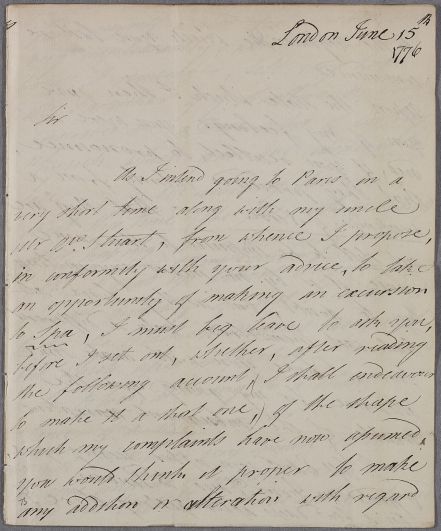 London June 15th
1776
Sir
As I intend going to Paris in a
very short time along with my uncle
Mr Stuart, from whence I propose,
in conformity with your advice, to take
an opportunity of making an excursion
to Spa, I must beg leave to ask you,
before I set out, whether, after reading
the following account, (I shall endeavour
to make it a short one,) of the shape
which my complaints have now assumed,
you would think it proper to make
any addition or alteration with regard